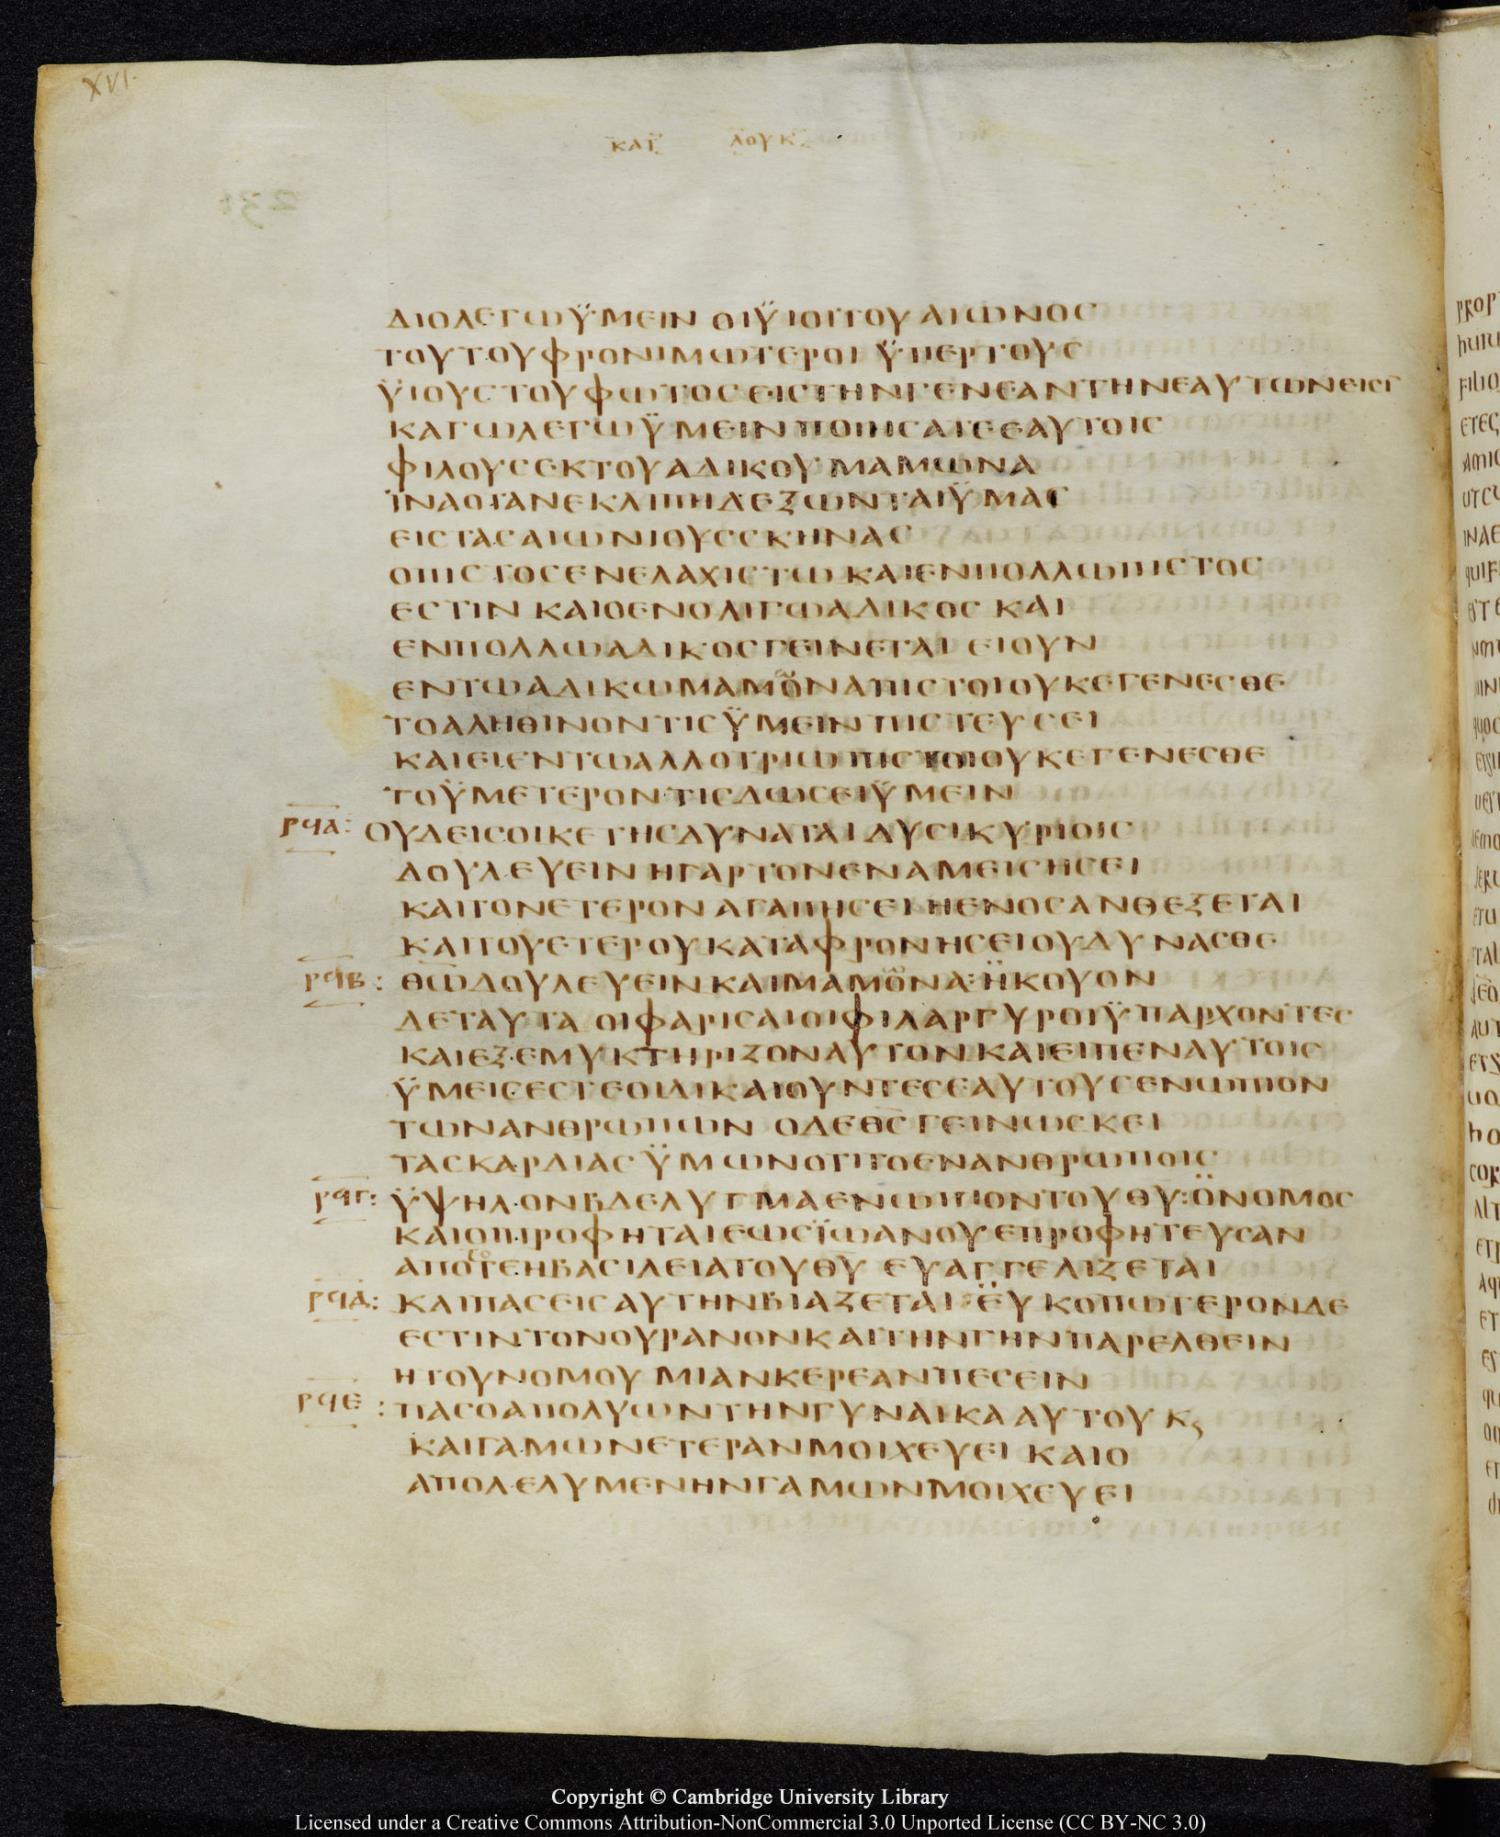 XVI.
ΚΑΤ ΛΟΥΚ
ΔΙΟΛΕΓΩΫΜΕΙΝ ΟΙΫΙΟΙΤΟΥ ΑΙΩΝΟΣ
ΤΟΥΤΟΥΦΡΟΝΙΜΩΤΕΡΟΙ ΫΠΕΡΤΟΥΣ
ΫΙΟΥΣΤΟΥΦΩΤΟΣΕΙΣΤΗΝΓΕΝΕΑΝΤΗΝΕΑΥΤΩΝΕΙΣΙ
ΚΑΓΩΛΕΓΩΫΜΕΙΝΠΟΙΗΣΑΤΕΕΑΥΤΟΙΣ
ΦΙΛΟΥΣΕΚΤΟΥΑΔΙΚΟΥΜΑΜΩΝΑ
ΪΝΑΟΤΑΝΕΚΛΙΠΗΔΕΞΩΝΤΑΙΫΜΑΣ
ΕΙΣΤΑΣΑΙΩΝΙΟΥΣΣΚΗΝΑΣ
ΟΠΙΣΤΟΣΕΝΕΛΑΧΙΣΤΩ ΚΑΙΕΝΠΟΛΛΩΠΙΣΤΟΣ
ΕΣΤΙΝ ΚΑΙΟΕΝΟΛΙΓΩΑΔΙΚΟΣ ΚΑΙ
ΕΝΠΟΛΛΩΑΔΙΚΟΣΓΕΙΝΕΤΑΙ ΕΙΟΥΝ
ΕΝΤΩΑΔΙΚΩΜΑΜΩΝΑΠΙΣΤΟΙΟΥΚΕΓΕΝΕΣΘΕ
ΤΟΑΛΗΘΙΝΟΝΤΙΣΫΜΕΙΝΠΙΣΤΕΥΣΕΙ
ΚΑΙΕΙΕΝΤΩΑΛΛΟΤΡΙΩΠΙΣΤΟΙΟΥΚΕΓΕΝΕΣΘΕ
ΤΟΫΜΕΤΕΡΟΝΤΙΣΔΩΣΕΙΫΜΕΙΝ
ΡϤΑ: ΟΥΔΕΙΣΟΙΚΕΤΗΣΔΥΝΑΤΑΙΔΥΣΙΚΥΡΙΟΙΣ
ΔΟΥΛΕΥΕΙΝΗΓΑΡΤΟΝΕΝΑΜΕΙΣΗΣΕΙ
ΚΑΙΤΟΝΕΤΕΡΟΝΑΓΑΠΗΣΕΙΗΕΝΟΣΑΝΘΕΞΕΤΑΙ
ΚΑΙΤΟΥΕΤΕΡΟΥΚΑΤΑΦΡΟΝΗΣΕΙΟΥΔΥΝΑΣΘΕ
ΡϤΒ: ΘΩΔΟΥΛΕΥΕΙΝΚΑΙΜΑΜΩΝΑ:ΗΚΟΥΟΝ
ΔΕΤΑΥΤΑ ΟΙΦΑΡΙΣΑΙΟΙΦΙΛΑΡΓΥΡΟΙΫΠΑΡΧΟΝΤΕΣ
ΚΑΙΕΞΕΜΥΚΤΗΡΙΖΟΝΑΥΤΟΝΚΑΙΕΙΠΕΝΑΥΤΟΙΣ
ΫΜΕΙΣΕΣΤΕΟΙΔΙΚΑΙΟΥΝΤΕΣΕΑΥΤΟΥΣΕΝΩΠΙΟΝ
ΤΩΝΑΝΘΡΩΠΩΝ ΟΔΕΘΣΓΕΙΝΩΣΚΕΙ
ΤΑΣΚΑΡΔΙΑΣΫΜΩΝΟΤΙΤΟΕΝΑΝΘΡΩΠΟΙΣ
ΡϤΓ: ΫΨΗΛΟΝΒΔΕΛΥΓΜΑΕΝΩΠΙΟΝΤΟΥΘΥ:ΟΝΟΜΟΣ
ΚΑΙΟΙΠΡΟΦΗΤΑΙΕΩΣΪΩΑΝΟΥΕΠΡΟΦΗΤΕΥΣΑΝ
ΑΠΟΤΕΗΒΑΣΙΛΕΙΑΤΟΥΘΥ ΕΥΑΓΓΕΛΙΖΕΤΑΙ
ΡϤΔ: ΚΑΙΠΑΣΕΙΣΑΥΤΗΝΒΙΑΖΕΤΑΙ:ΕΥΚΟΠΩΤΕΡΟΝΔΕ
ΕΣΤΙΝΤΟΝΟΥΡΑΝΟΝΚΑΙΤΗΝΓΗΝΠΑΡΕΛΘΕΙΝ
ΗΤΟΥΝΟΜΟΥ ΜΙΑΝΚΕΡΕΑΝΠΕΣΕΙΝ
ΡϤΕ: ΠΑΣΟΑΠΟΛΥΩΝΤΗΝΓΥΝΑΙΚΑΑΥΤΟΥ Κ
ΚΑΙΓΑΜΩΝΕΤΕΡΑΝΜΟΙΧΕΥΕΙ ΚΑΙΟ
ΑΠΟΛΕΛΥΜΕΝΗΝΓΑΜΩΝΜΟΙΧΕΥΕΙ
Copyright © Cambridge University Library
Licensed under a Creative Commons Attribution-NonCommercial 3.0 Unported License (CC BY-NC 3.0)